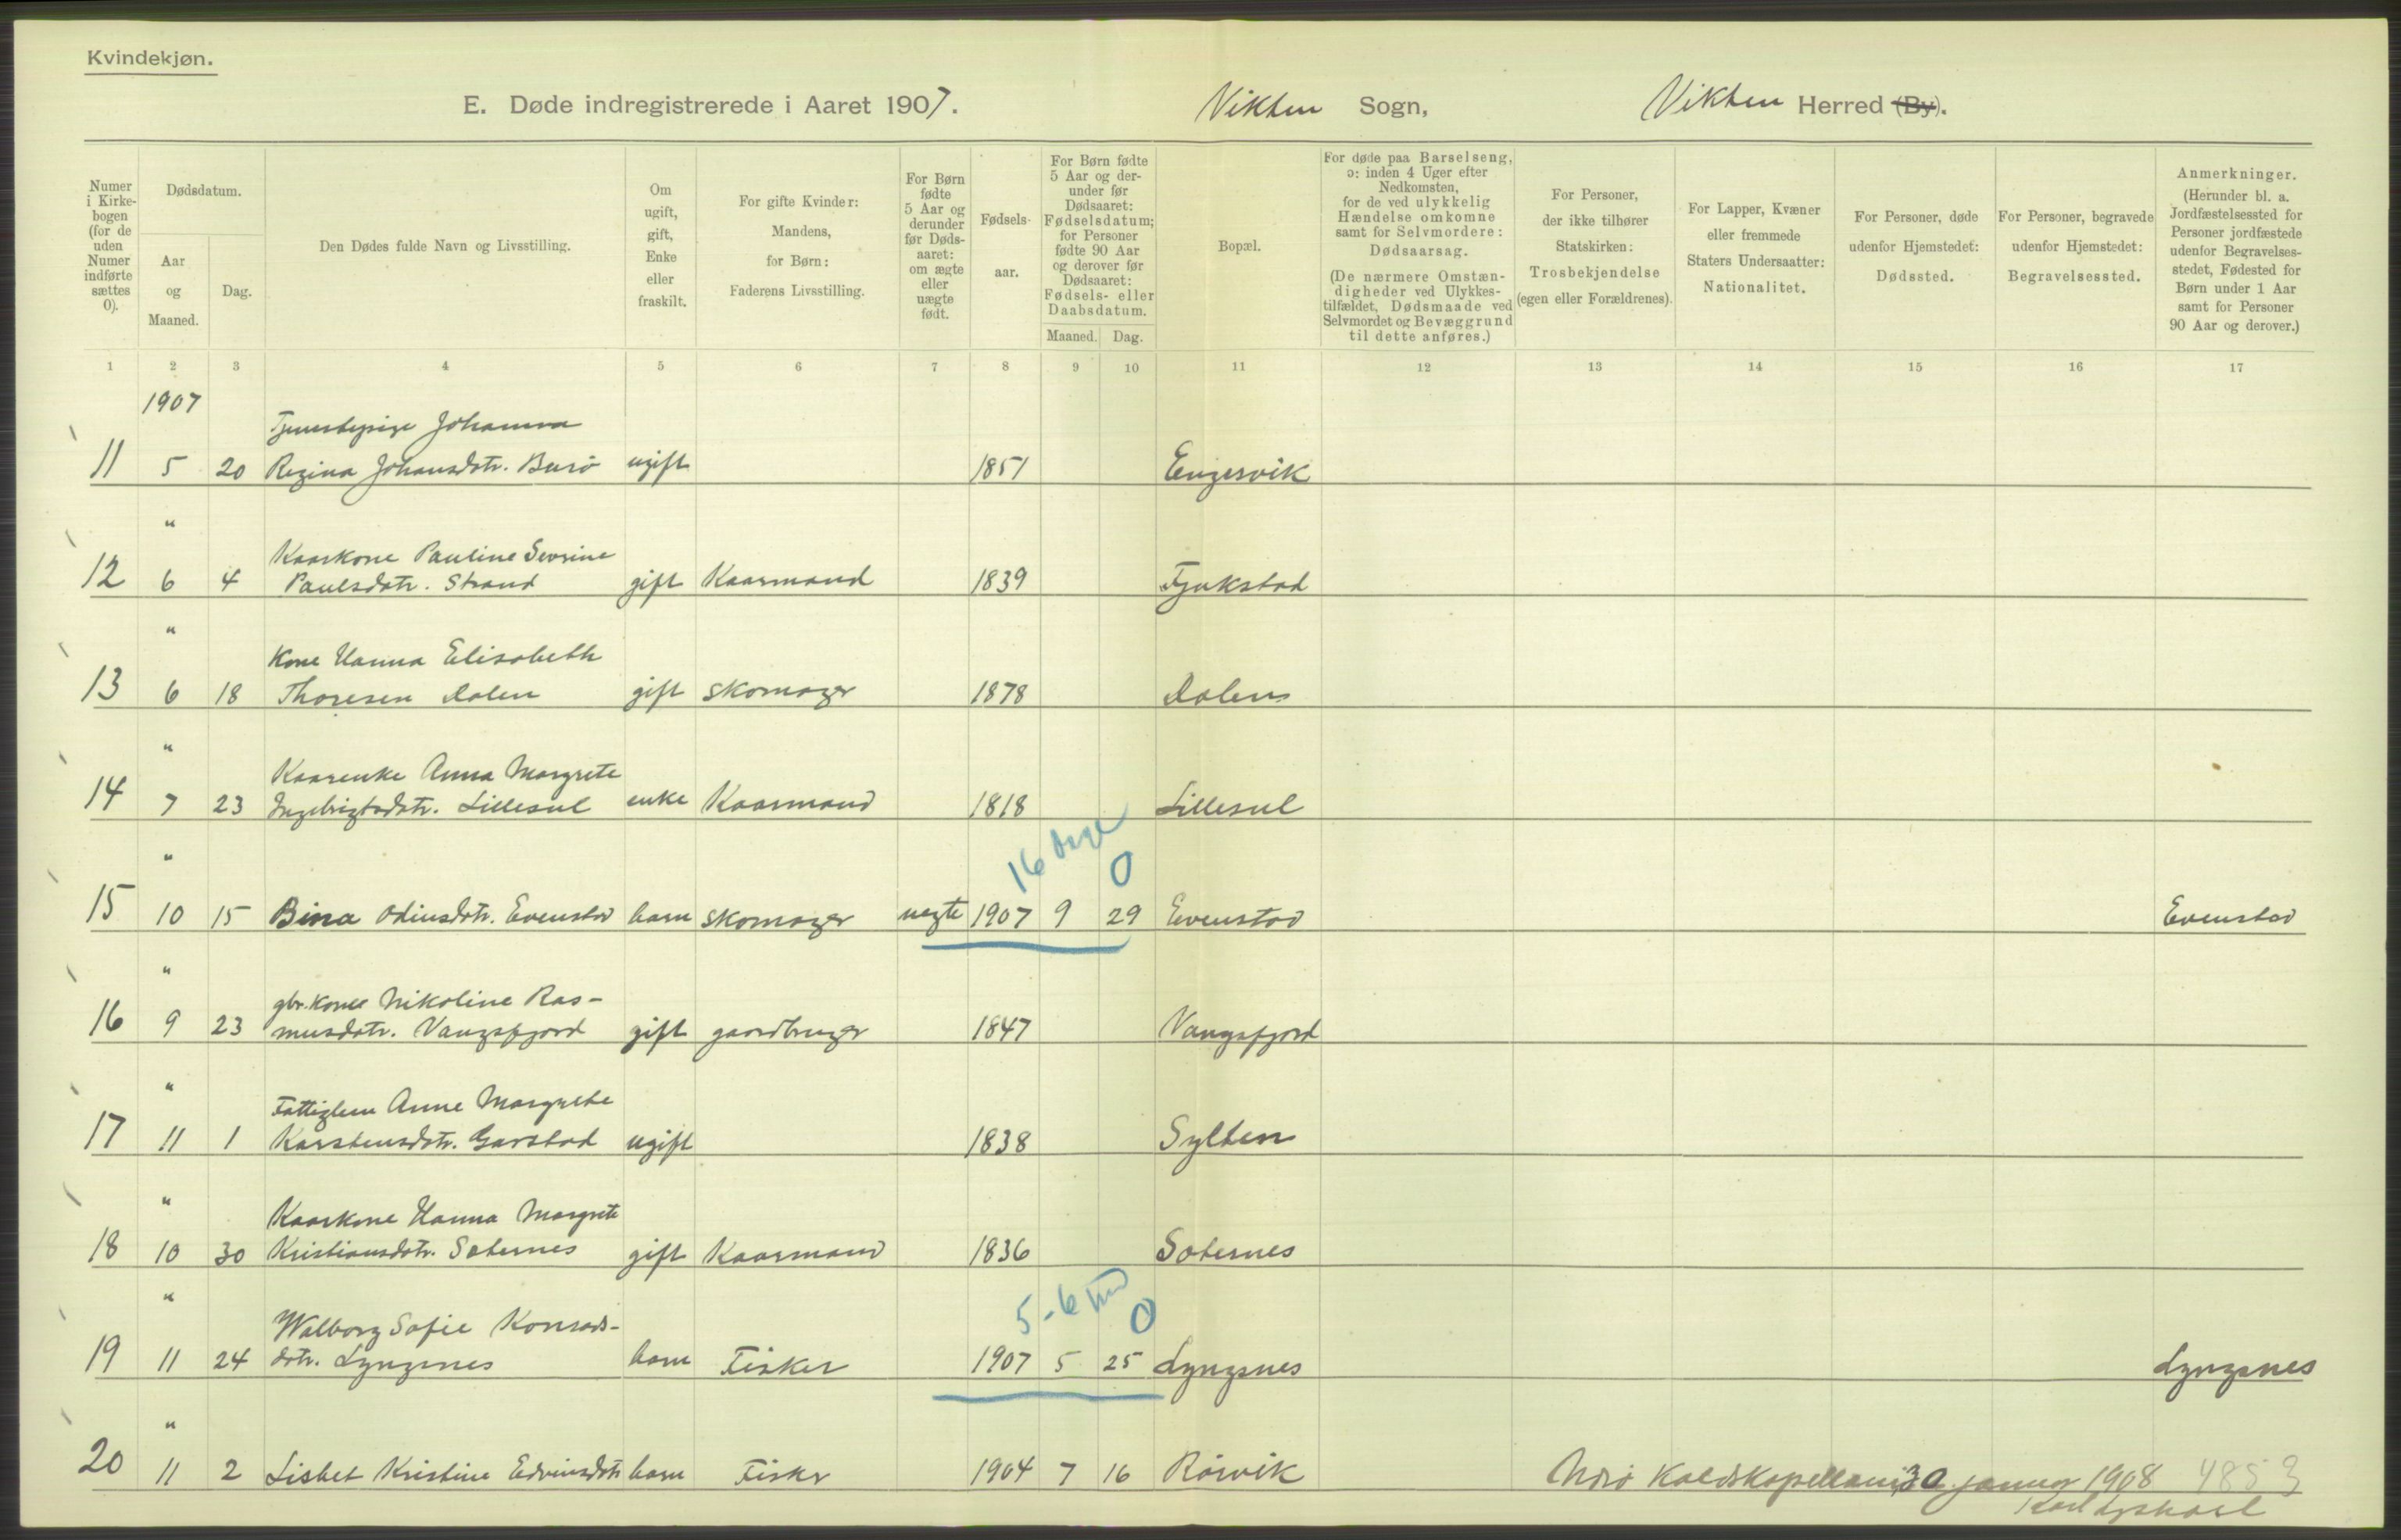 Kvindekjøn.
E. Døde indregistrerede i Aaret 1907. Vikten Sogn, Vikten Herred (By).
Numer i Kirkebogen (for de uden Numer indførte sættes 0).
Dødsdatum.
Aar og Maaned.
Dag.
Den Dødes fulde Navn og Livsstilling.
Om ugift, gift, Enke eller fraskilt.
For gifte Kvinder: Mandens, for Børn: Faderens Livsstilling.
For Børn fødte 5 Aar og derunder før Dødsaaret: om ægte eller uægte født.
Fødselsaar.
For Børn fødte 5 Aar og derunder før Dødsaaret: Fødselsdatum; for Personer fødte 90 Aar og derover før Dødsaaret: Fødsels- eller Daabsdatum.
Maaned. Dag.
Bopæl.
For døde paa Barselseng, ɔ: inden 4 Uger efter Nedkomsten, for de ved ulykkelig Hændelse omkomne samt for Selvmordere: Dødsaarsag.
(De nærmere Omstændigheder ved Ulykkestilfældet, Dødsmaade ved Selvmordet og Bevæggrund til dette anføres.)
For Personer, der ikke tilhører Statskirken: Trosbekjendelse (egen eller Forældrenes).
For Lapper, Kvæner eller fremmede Staters Undersaatter: Nationalitet.
For Personer, døde udenfor Hjemstedet: Dødssted.
For Personer, begravede udenfor Hjemstedet: Begravelsessted.
Anmerkninger.
(Herunder bl. a. Jordfæstelsessted for Personer jordfæstede udenfor Begravelsesstedet, Fødested for Børn under 1 Aar samt for Personer 90 Aar og derover.)
1 2 3 4 5 6 7 8 9 10 11 12 13 14 15 16 17
1907
Tjenestepige Johanna
11 5 20 Regina Johansdtr. Burø ugift 1851 Engesvik
"
Kaarkone Pauline Sevrine
12 6 4 Paulsdatr. Strand gift Kaarmand 1839 Fjukstad
"
Kone Hanna Elisabeth
13 6 18 Thoresen Dalen gift skomager 1878 Dalen
"
Kaarenke Anna Margrete
14 7 23 Ingebrigtsdatr. Lillesul enke Kaarmand 1818 Lillesul
16 dage
0
"
15 10 15 Bina Odinsdtr. Evenstad barn skomager uegte 1907 9 29 Evenstad Evenstad
"
gbr.kone Nikoline Ras-
16 9 23 musdatr. Vangsfjord gift gaardbruger 1847 Vangsfjord
"
Fattiglem Anne Margrethe
17 11 1 Karstensdtr. Garstad ugift 1838 Sylten
"
Kaarkone Hanna Margrete
18 10 30 Kristiansdtr. Saternes gift Kaarmand 1836 Saternes
5-6
0
"
Walborg Sofie Konrads-
19 11 24 dtr. Lyngsnes barn Fisker 1907 5 25 Lyngsnes Lyngsnes
"
20 11 2 Lisbet Kristine Edvinsdtr barn Fisker 1904 7 16 Rörvik
30 januar 1908 4853